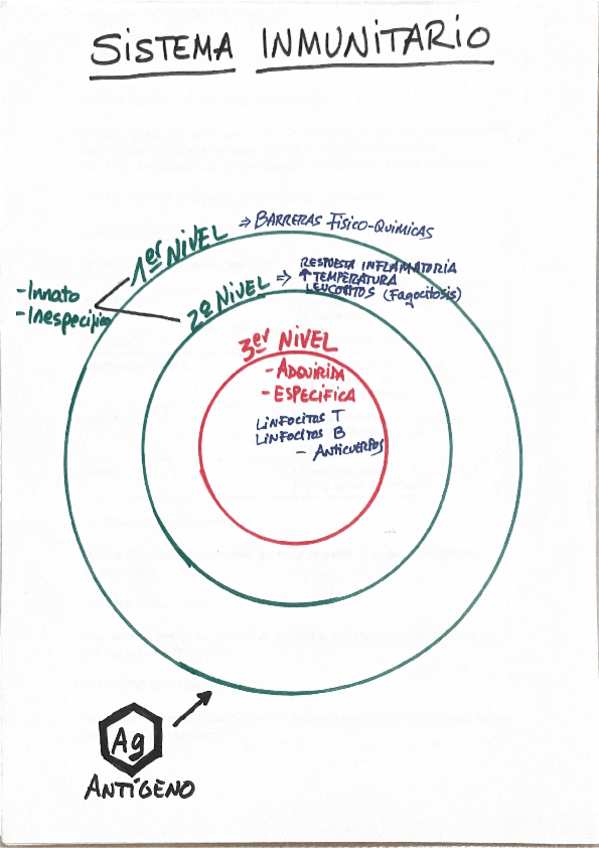 SISTEMA INMUNITARIO
1er NIVEL ⇒ BARRERAS FÍSICO-QUÍMICAS
RESPUESTA INFLAMATORIA
↑ TEMPERATURA
LEUCOCITOS (Fagocitosis)
2º NIVEL ⇒
- Innato
- Inespecífico
3er NIVEL
- ADQUIRIDA
- ESPECÍFICA
LINFOCITOS T
LINFOCITOS B
- ANTICUERPOS
Ag
ANTÍGENO